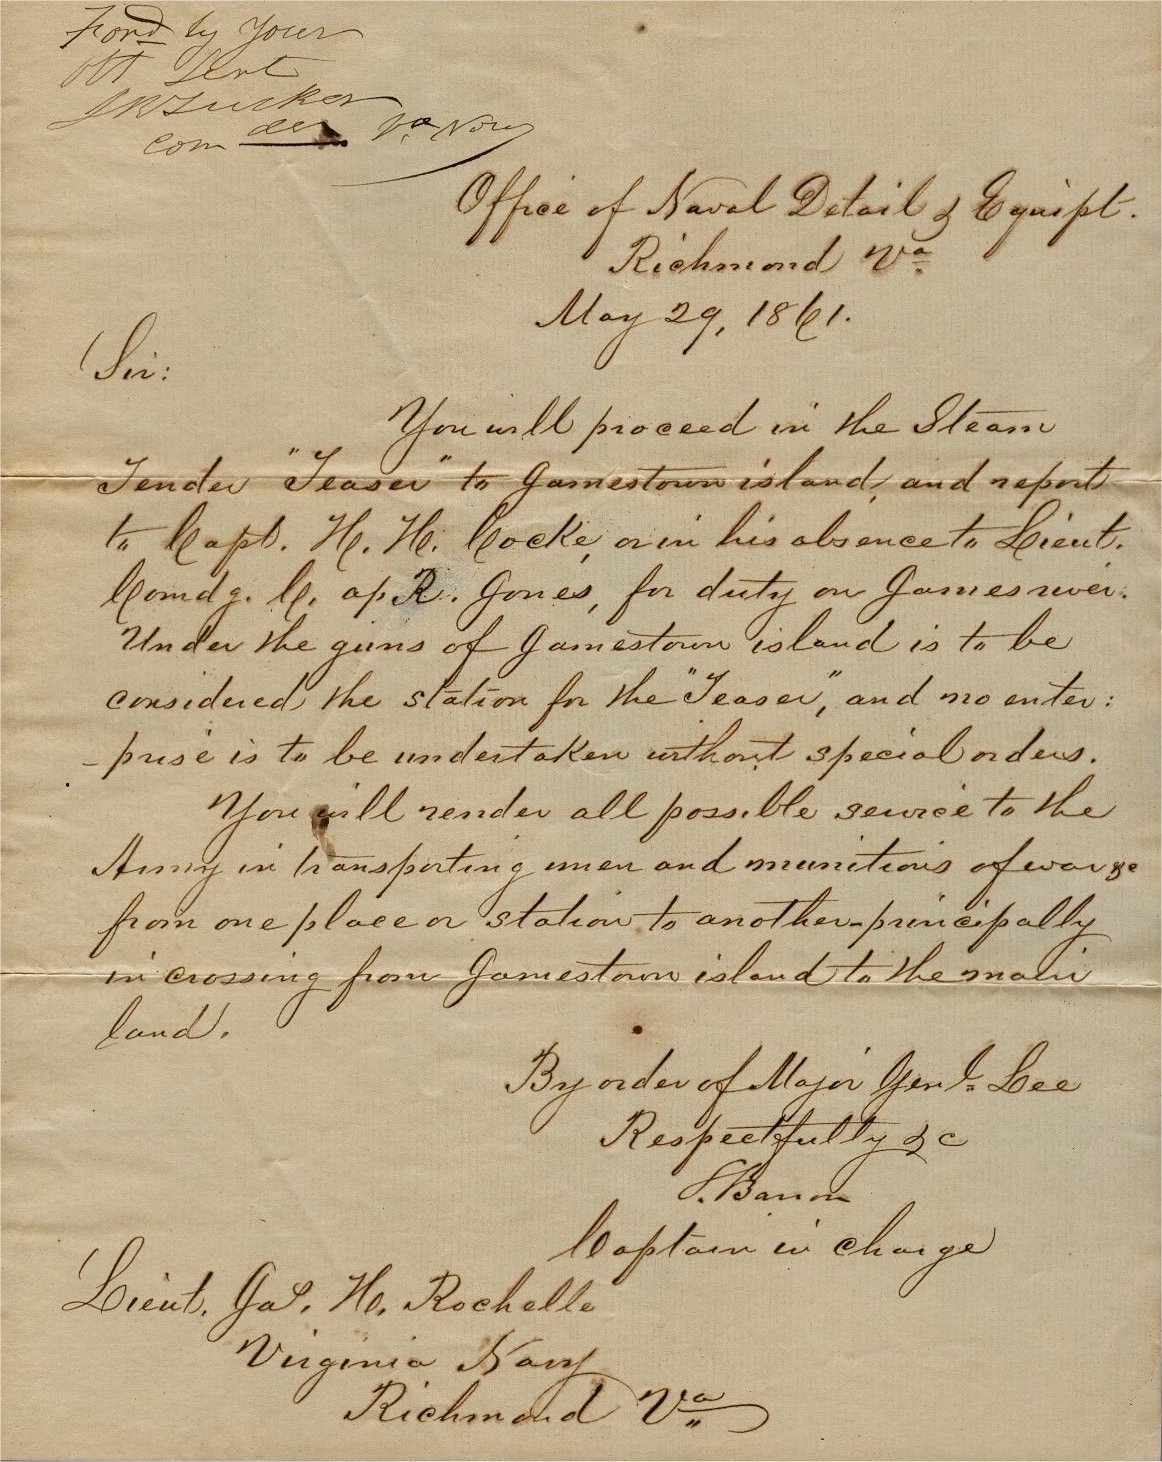 Ford by Your
Obt Servt
J R Tucker
Comder Va Navy
Office of Naval Detail & Equipt.
Richmond Va
May 29, 1861.
Sir:
You will proceed in the Steam
Tender "Teaser" to Jamestown island, and report
to Capt. H. H. Cocke, or in his absence to Lieut.
Comdg. C. ap R. Jones, for duty on James river.
Under the guns of Jamestown island is to be
considered the station for the "Teaser", and no enter:
-prise is to be undertaken without special orders.
You will render all possible service to the
Army in transporting men and munitions of war &c
from one place or station to another - principally
in crossing from Jamestown island to the main
land.
By order of Major Genl. Lee
Respectfully &c
S. Barron
Captain in charge
Lieut. Jas. H. Rochelle
Virginia Navy
Richmond Va